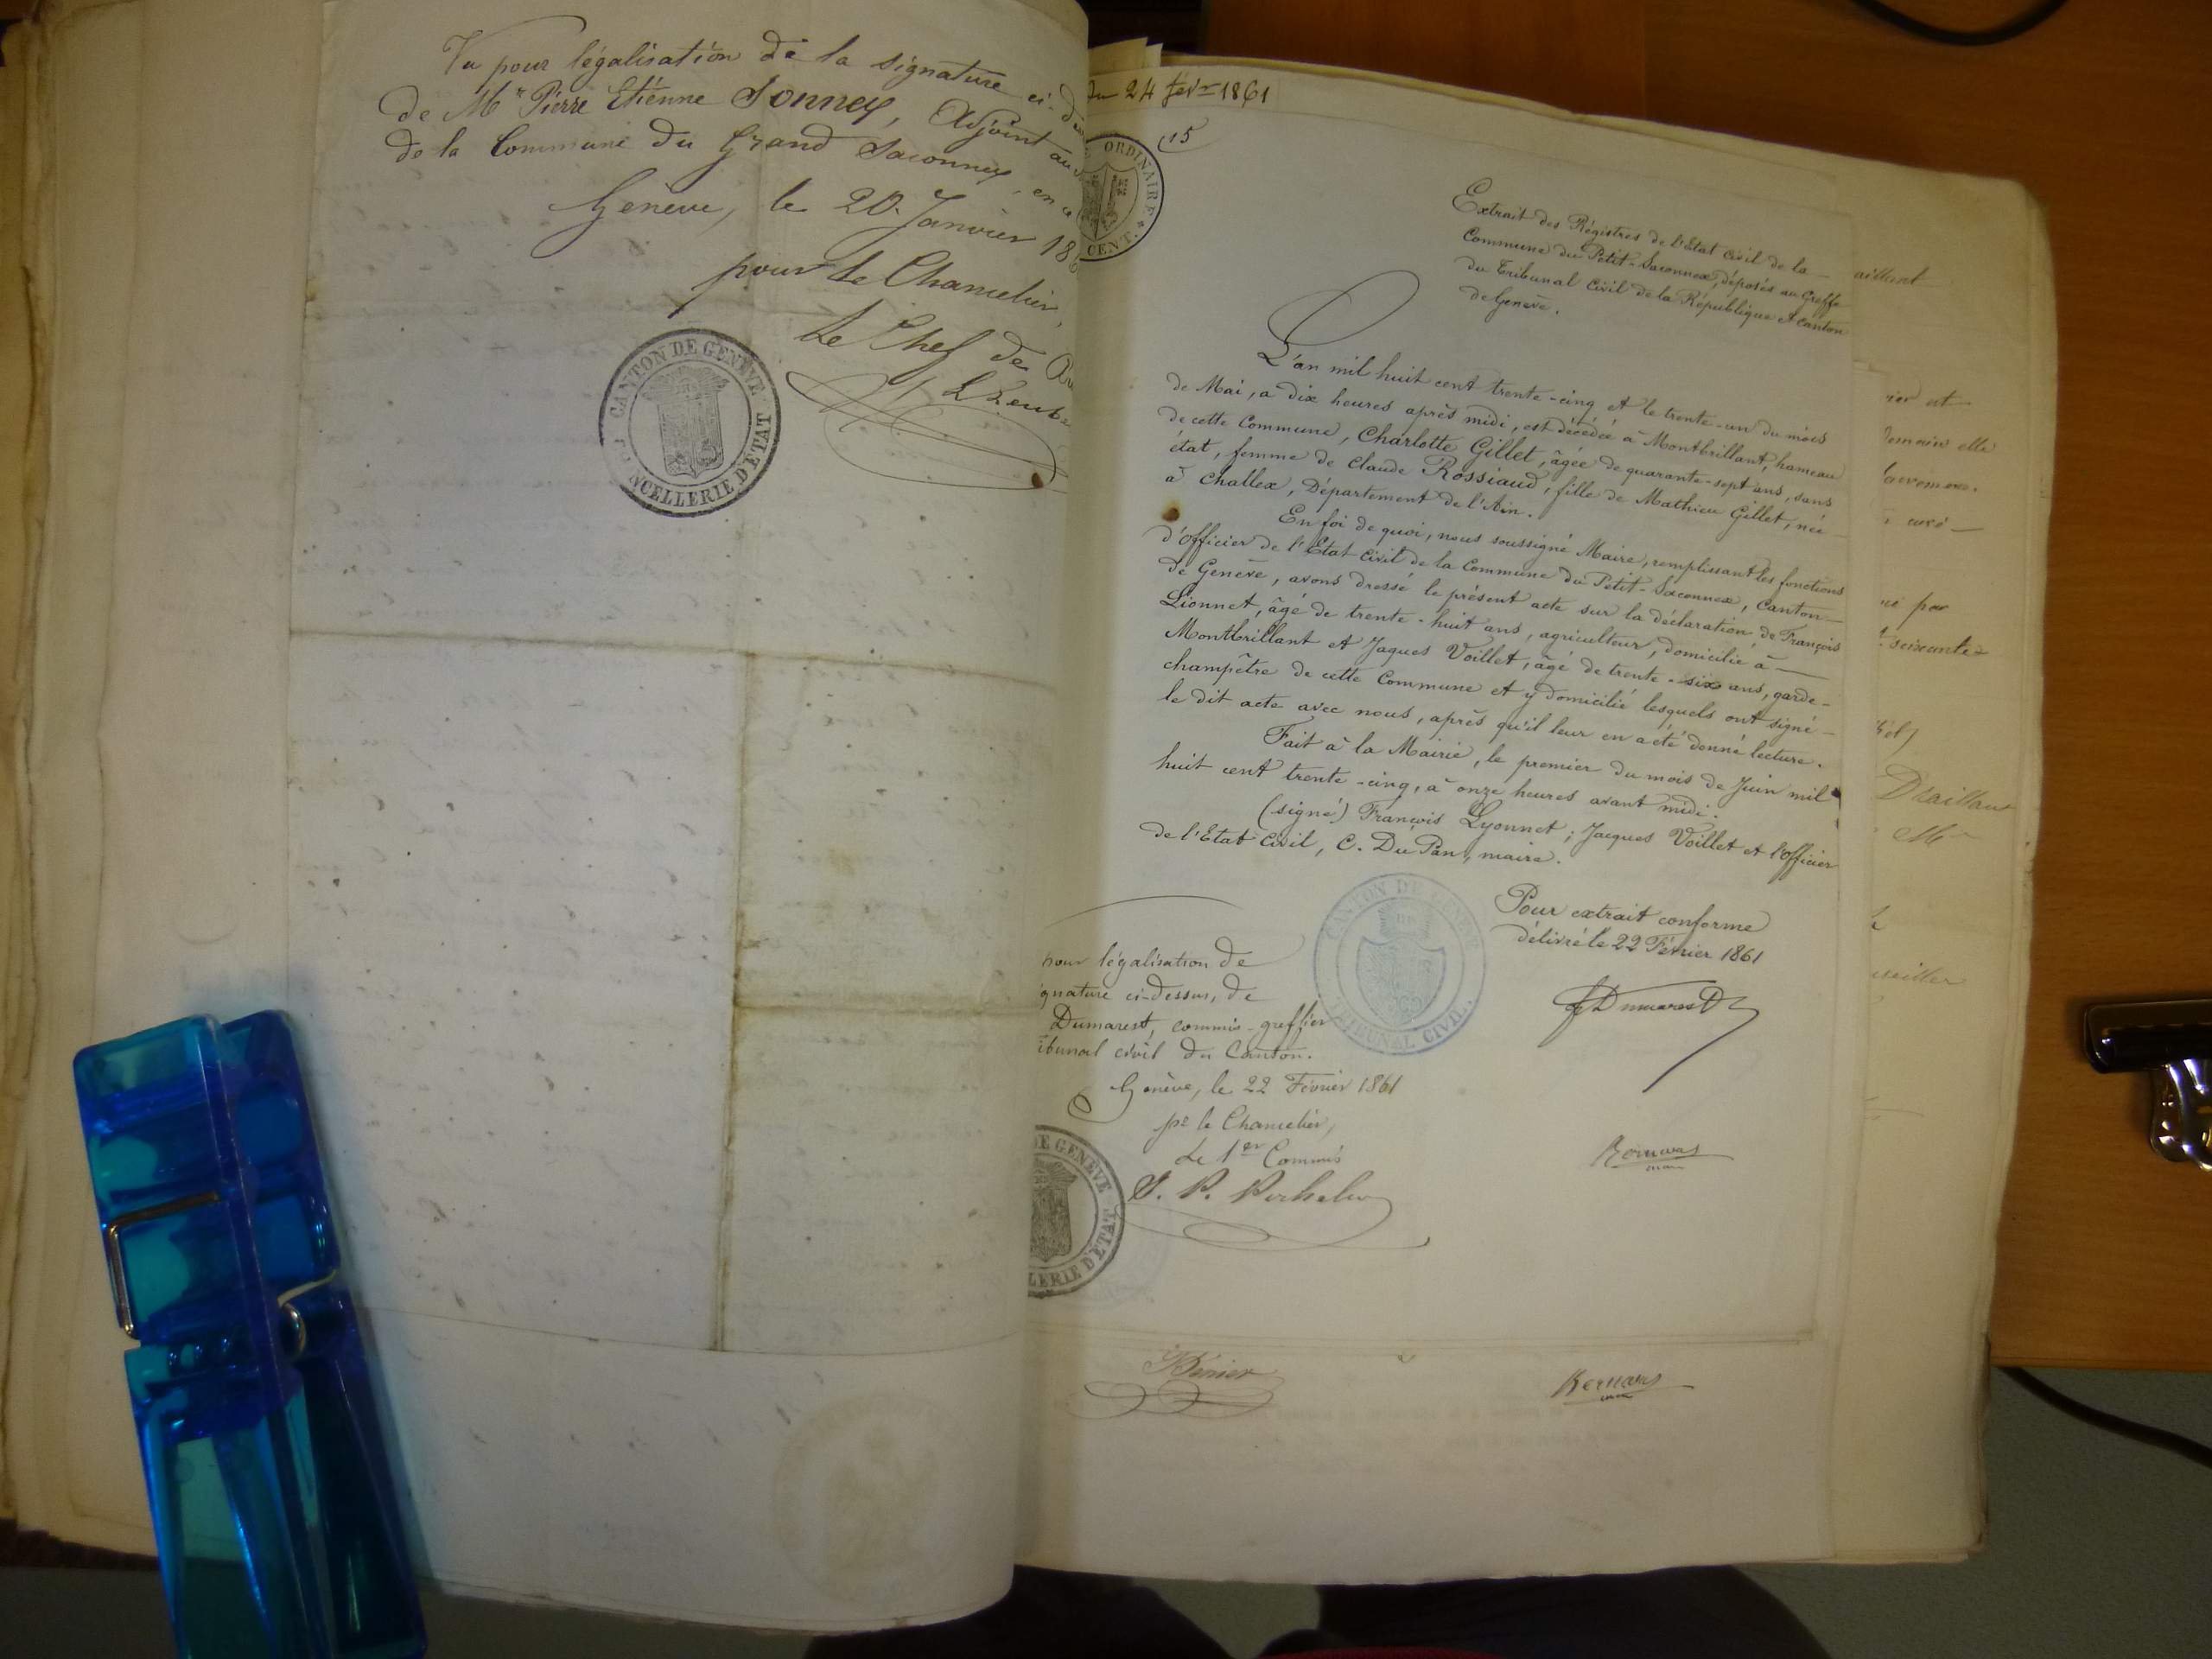 Vu pour légalisation de la signature ci-
de Mr Pierre Etienne Sonney, Adjoint au
de la Commune du Grand Saconnex, en ce
Genève, le 20 Janvier 186
pour le Chancelier,
Le Chef de
CANTON DE GENÈVE
CHANCELLERIE D'ETAT
Du 24 févr 1861
15
ORDINAIRE
CENT.
Extrait des Régistres de l'Etat civil de la
Commune du Petit-Saconnex, déposés au Greffe
du Tribunal Civil de la République et Canton
de Genève.
L'an mil huit cent trente-cinq et le trente-un du mois
de Mai, a dix heures après midi, est décédée à Montbrillant, hameau
de cette Commune, Charlotte Gillet, âgée de quarante-sept ans, sans
état, femme de Claude Rossiaud, fille de Mathieu Gillet, née
à Challex, Département de l'Ain.
En foi de quoi, nous soussigné Maire, remplissant les fonctions
d'officier de l'Etat Civil de la Commune du Petit-Saconnex, Canton
de Genève, avons dressé le présent acte sur la déclaration de François
Lionnet, âgé de trente-huit ans, agriculteur, domicilié à
Montbrillant et Jaques Voillet, âgé de trente-six ans, garde-
champêtre de cette Commune et y domicilié lesquels ont signé
le dit acte avec nous, après qu'il leur en a été donné lecture.
Fait à la Mairie, le premier du mois de Juin mil
huit cent trente-cinq, à onze heures avant midi.
(signé) François Lyonnet; Jacques Voillet et l'officier
de l'Etat Civil, C. Du Pan, maire.
Pour extrait conforme
délivré le 22 Février 1861
Dumarest
CANTON DE GENÈVE
TRIBUNAL CIVIL.
pour légalisation de
gnature ci-dessus, de
Dumarest, commis-greffier
ibunal civil du Canton.
Genève, le 22 Février 1861
pr le Chancelier,
Le 1er Commis
DE GENÈVE
LLERIE D'ETAT
aillant
demain elle
soixante